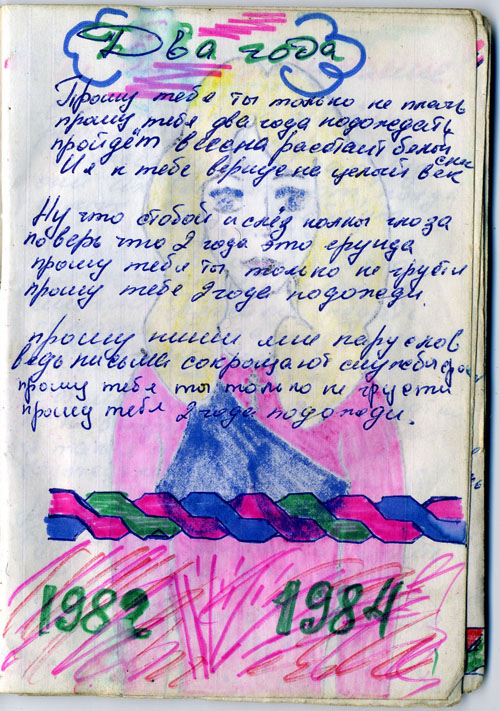 Два года
Прошу тебе ты только не плачь
прошу тебя два года подождать
пройдёт весна растаит белый снег
И я к тебе вернусь на целый век
Ну что стобой и слёз полны глаза
поверь что 2 года это ерунда
прошу тебя ты только не грусти
прошу тебе 2 года подожди.
прошу пиши мне пару слов
ведь письма сокращают службы
прошу тебя ты только не грусти
прошу тебя 2 года подожди.
1982 1984